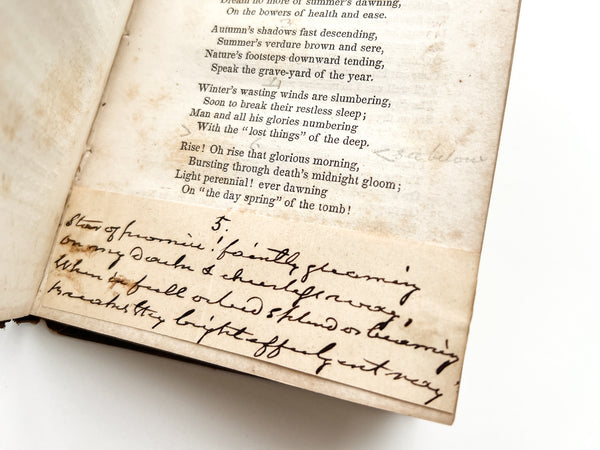 Dream no more of summer's dawning,
On the bowers of health and ease.
Autumn's shadows fast descending,
Summer's verdure brown and sere,
Nature's footsteps downward tending,
Speak the grave-yard of the year.
Winter's wasting winds are slumbering,
Soon to break their restless sleep;
Man and all his glories numbering
With the "lost things" of the deep.
Rise! Oh rise that glorious morning,
Bursting through death's midnight gloom;
Light perennial! ever dawning
On "the day spring" of the tomb!
< 5 below
5.
Star of promise! faintly gleaming
on my Dark & cheerless way,
When in full orbed splendor beaming
Breaks thy bright effulgent ray